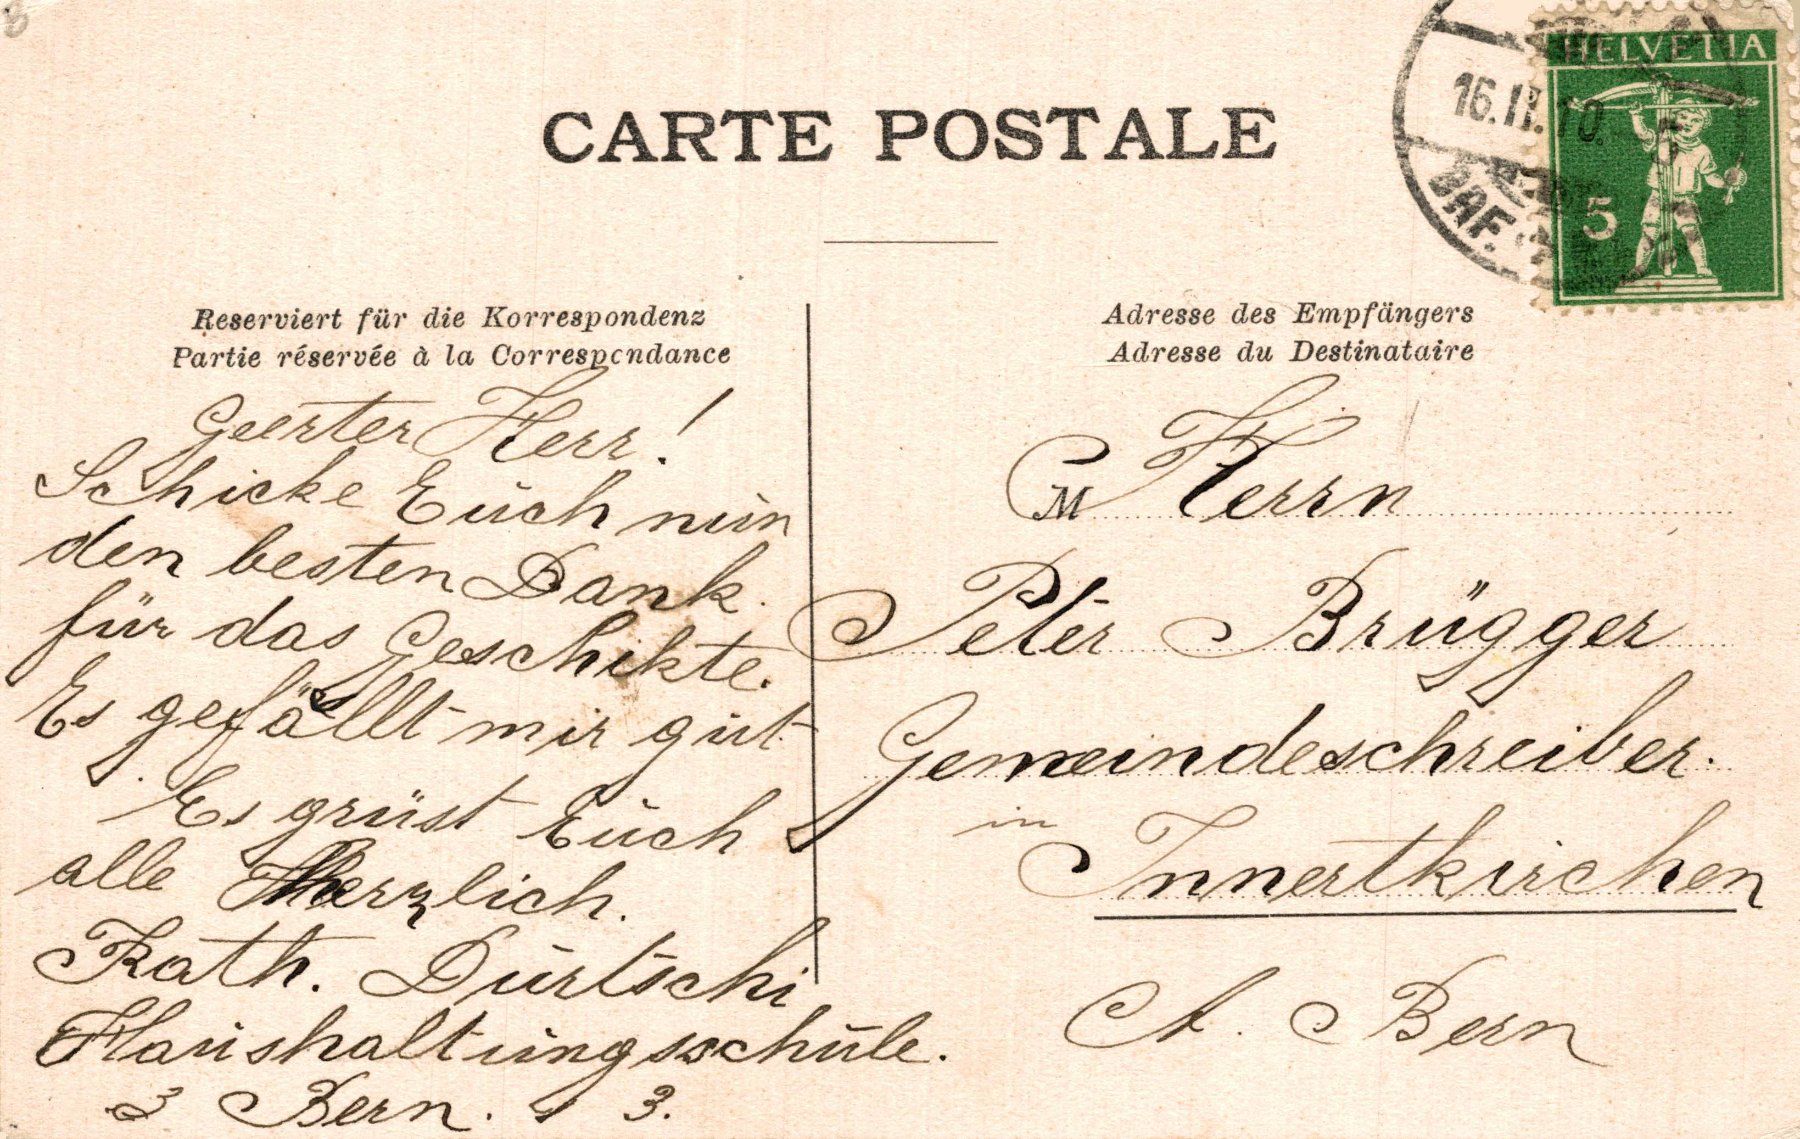 CARTE POSTALE
HELVETIA
5
16.II.10.
Reserviert für die Korrespondenz
Partie réservée à la Correspondance
Geerter Herr!
Schicke Euch nun
den besten Dank.
für das Geschikte.
Es gefällt mir gut.
Es grüst Euch
alle Herzlich.
Kath. Durtschi
Haushaltungsschule.
3 Bern. 3.
Adresse des Empfängers
Adresse du Destinataire
M Herrn
Peter Brügger
Gemeindeschreiber.
in Innertkirchen
Ct. Bern